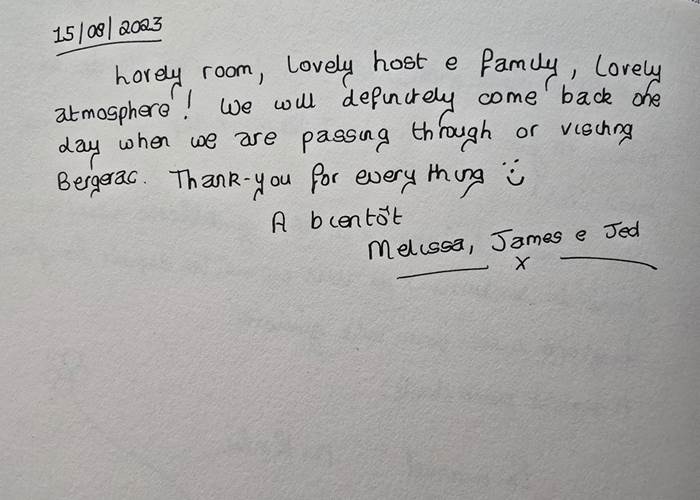 15/08/2023
Lovely room, Lovely host e family, Lovely
atmosphere! We will definitely come back one
day when we are passing through or visiting
Bergerac. Thank-you for every thing
A bientôt
Melissa, James e Jed
x